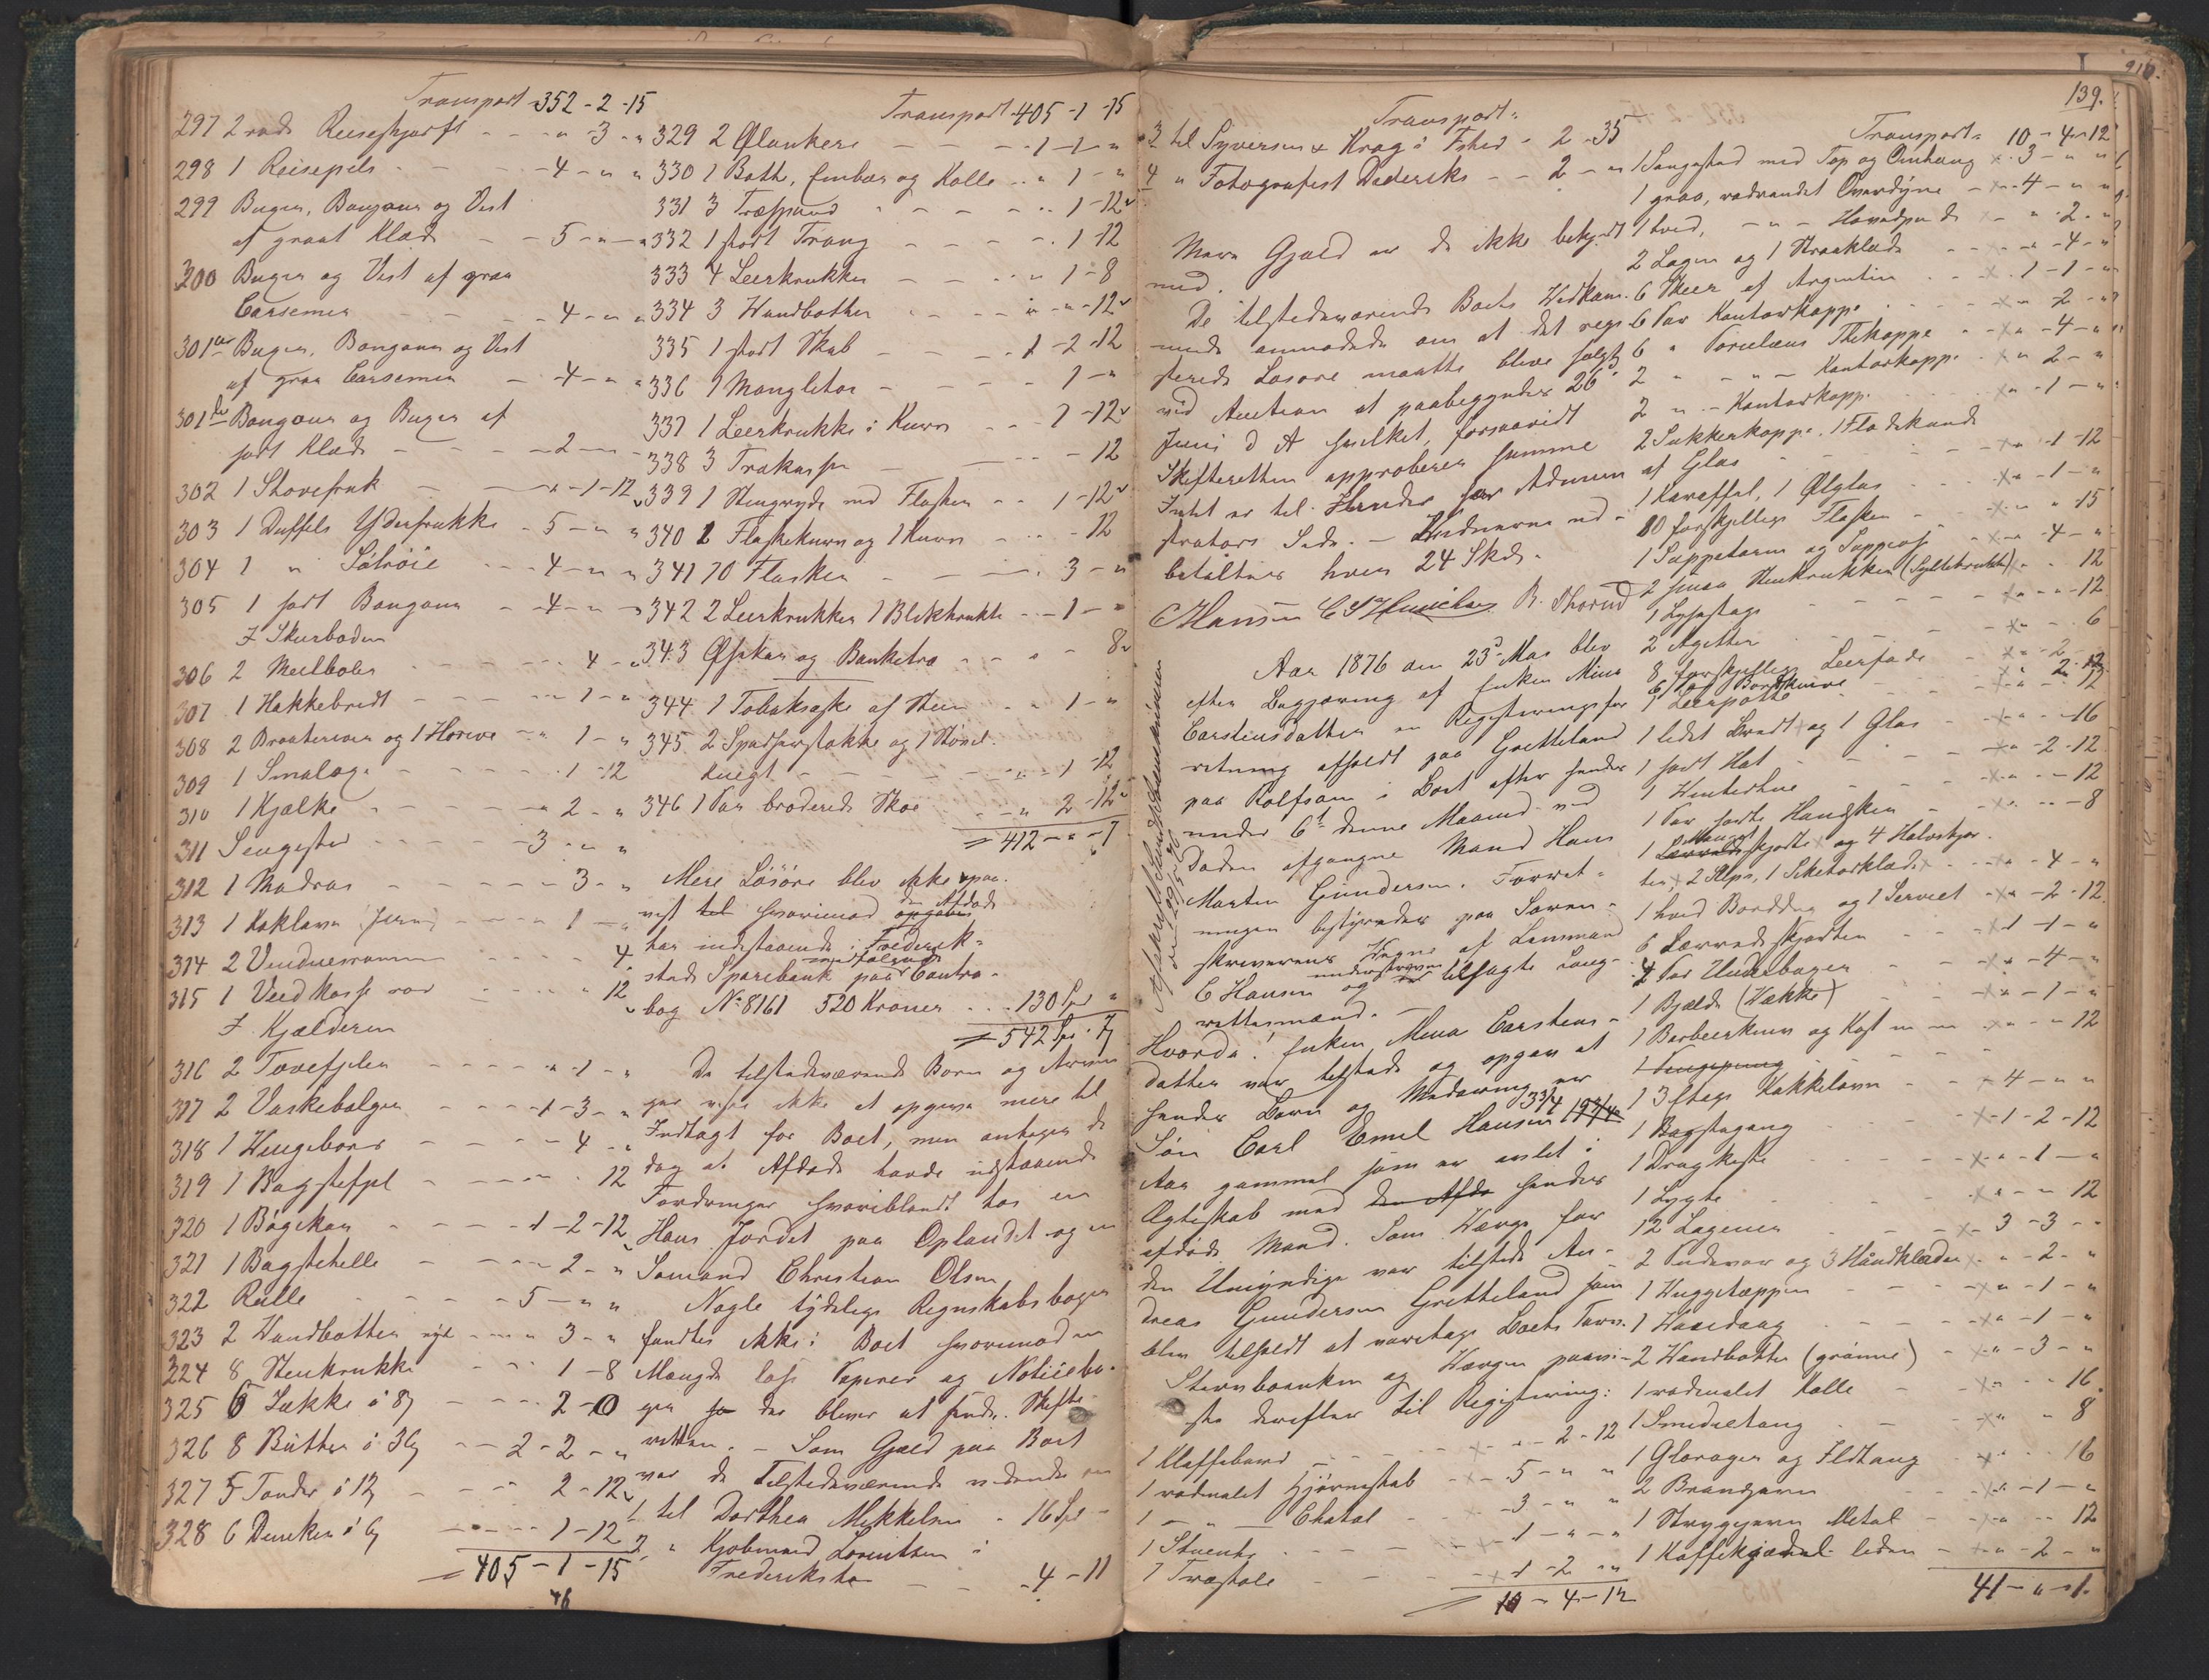 Transport 352 - 2 - 15
297 2 røde Reiseskjærf - - - " 3 - "
298 1 Reisepels - - - 4 - " "
299 Buxer, Bonjour og Vest
af graat Klæde - - 5 - " - "
300 Buxer og Vest af graa
Carsemer - - - 4 - " "
301 Buxer, Bonjour og Vest
af graa Carsemer - 4 - " "
301 Bonjour og Buxer af
sort Klæde - - - 2 - - -
302 1 Skovefrak - - " - 1 - 12
303 1 Duffels Yderfrakke - 5 - " "
304 1 " Sötröie - - - 4 - " "
305 1 sort Bonjour - 4 - " -
I Skurboden
306 2 Meelboler - - - - 4 - "
307 1 Hakkebredt - - - - 1 - "
308 2 Braateriver og 1 Høreve - " 1 - "
309 1 Smalage - - - - 1 - 12
310 1 Kjælke - - - - " 2 - "
311 Sengested - - - - 3 - " "
312 1 Madras - - - - - 3 - "
313 1 Kaklovn (Jern) - - - 1 - "
314 2 Vinduesrammer - - - - 4
315 1 Veed Kasse rød - - - - " 12
I Kjælderen
316 2 Tovefjeler - - - - " 1 - "
317 2 Vaskebalger - - - 1 - 3 - "
318 1 - - - - - 4 - "
319 1 Bagstefjel - - - - . 12
320 1 Bögekar - - - - 1 - 2 - 12
321 1 Bagstehelle - - - - 2 - "
322 Rulle - - - 5 - " "
323 2 Vandbøtter nye - - - " 3 - "
324 8 Steenkrukke - - - 1 - 8
325 6 Sække á 8 - - - 2 - 0
326 8 Bütter á 36 - - 2 - 2 - "
327 5 Tønder á 12 - - - 2 - 12
328 6 Dunker á 6 - - - - 1 - 12
= 405 - 1 - 15
46
Transport 405 - 1 - 15
329 2 Ølankere - - - - 1 - 1 - "
330 1 Bøtte, Embar og Kolle - - " 1 - "
331 3 Træspand - - - - - 1 - 12
332 1 stort Traug - - - - - 1 12
333 4 Leerkrukker - - - " 1 - 8
334 3 Vandbøtter - - - " - " - 12
335 1 stort Skab - - - - 1 - 2 - 12
336 1 Mangletøi - - - - 1 - "
337 1 Leerkrukke i Kurv - - - 1 - 12
338 3 - - - - 12
339 1 Steengryde med Flasker - - 1 - 12
340 2 Flaskekurve og 1 Kurv - - - 12
341 70 Flasker - - - - 3 - "
342 2 Leerkrukker 1 Blikkrukke - - 1 - "
343 Øsekar og Banketræ - - - - 8
344 1 Tobaksæske af Steen - - 1 - "
345 2 Spadserstokke og 1 Støvel-
knegt - - - - - 1 - 12
346 1 Par broderede Skoe - - " 2 - 12
= 412 - " - 7
Mere Lösöre blev ikke paa-
vist til hvorimod opgaves den Afdøde
har indestaaende i Frederik-
stads Sparebank paa medfølgende Contra-
bog No 8161 520 Kroner . . . 130 Spd "
= 542 Spd . 7
De tilstedeværende Børn og Arvin-
ger vidste ikke at opgive mere til
Indtægt for Boet, men antager de
dog at Afdøde havde udestaaende
Fordringer hvoriblandt hos en
Hans Jordet paa Oplandet og en
Sømand Christian Olsen
Nogle tydelige Regnskabsbøger
fandtes ikke i Boet hvorimod en
Mængde löse Papirer og Noticebø-
ger der bliver at sende Skifte-
retten. - Som Gjæld paa Boet
var de Tilstedeværende vidende om
1 til Dorthea Mikkelsen - 16 Spd -
2 " Kjøbmand Lorentsen i
Frederikstad - - - 4 - 11
139.
Transport.
3 til Syversen & Krog i Fsted - 2 - 35
4 " Fotografist Dideriks - - 2 - "
Mere Gjæld er de ikke bekjendt
med.
De tilstedeværende Boets Vedkom-
mende anmodede om at det regi-
strerede Løsøre maatte blive solgt
ved Auction at paabegyndes 26
Juni d A hvilket, forsaavidt
Skifteretten approberer samme
Intet er til Hinder for Admini-
strators Side. - Vidnerne ud-
betaltes hver 24 Skd.
CHansen R. Thorud
Aar 1876 den 23 Mai blev
efter Begjæring af Enken Mina
Carstensdatter en Registreringsfor-
retning afholdt paa Gretteland
paa Rolfsøen i Boet efter hendes
under 6te denne Maaned ved
Døden afgangne Mand Hans
Martin Gundersen. Forret-
ningen bestyredes paa Soren-
skriverens Vegne af Lensmand
C Hansen og understrevne tilsagte Laug-
rettesmænd. -
Hvorda! Enken Mina Carstens-
datter var tilstede og opgav at
hendes Børn og Medarving er
Søn Carl Emil Hansen 3 3/4
Aar gammel som er avlet i
Ægteskab med den Afdø hendes
afdøde Mand. Som Værge for
den Umyndige var tilstede An-
dreas Gundersen Gretteland som
blev tilholdt at varetage Boets Tarv.
Stervboenken og Værgen paavi-
ste derefter til Registrering:
1 Klaffebord - - - x - " - 2 - 12
1 rødmalet Hjørneskab - x - 5 - " "
1 - " - Chatol - - - 3 - " "
1 Stueuhr - - - - x - 1 - " - "
7 Træstole - - - x - 1 - 2 - "
10 - 4 - 12
Transport. 10 - 4 - 12
1 Sengested med Top og Omhæng x - 3 - " "
1 graa, rødrandet Overdyne - x - 4 - " "
1 hvid, - " - Hovedpude x - " 2 - "
2 Lagen og 1 Straaklæde - - x - " - 4 - "
6 Skeer af Argentin - - x . 1 - 1 - "
6 Par Kantorkoppe - - - x " 2 - "
6 " Porcelæns Thekoppe - x " - 4 - "
2 " - " - Kantorkoppe . x " 2 - "
2 " - Kantorkopp. - - x " - 1 - "
2 Sukkerkoppe. 1 Flødekande
af Glas - - - x " - 1 - 12
1 Karaffel, 1 Ølglas - - x " - 1 - "
10 forskjellige Flasker - - x " " 15
1 Suppeterin og Suppeøse x - " 4 - "
2 smaa Steenkrukker (Syltekrukke) x - . 12
1 Lysestage - - - - x " - " - 12
2 Agetter - - - - - x " - . 6
8 forskjellige Leerfade - x " - 2 -
6 Par Bordknive - - x " 2 - 12
1 Leerpotte - - - x " - " 12
1 lidet Bredt x og 1 Glas - - x " - " - 16
1 sort Hat - - - x " - 2 - 12
1 Vinterhue - - x " - " - 12
1 Par sorte Handsker - - x " - " - 8
1 Manget skjorte x og 4 Halsskjor-
ter, x 2 Slips, 1 x - - - x " - 4 - "
1 hvid Borddug og 1 Serviet - x " - 2 - 12
6 Lærredsskjorter - - x 1 - 1 - "
4 Par Underbuxer - - x " - 4 - "
1 Bjælde (Vække) - - x " - 1 - "
1 Barbeerkniv og Kost m m . x " - " 12
1 Pengepung - - - -
1 3 Etages Kakkelovn - - x 4 - " "
1 Bagstegang - - x - 1 - 2 - 12
1 Dragkiste - - - x - " - 1 - "
1 Lygte - - - - x " - " 12
12 Lagener - - - x - 3 - 3 - -
2 Pudevar og 3 Håndklæder x - " - 2 - "
1 Vuggetæppe - - - x " - 1 - "
1 - - - x " - 1 - "
2 Vandbøtter (grønne) - x " - 3 - "
1 rødmalet Kolle - - - x " - " 16.
1 Smedietang - - - x " " 8
1 Glorager og Ildtang - x " - " 16
2 Brandjern - - - x " - 1 - "
1 Strygejern Metal - - x " - " 12
1 Kaffekjædel liden - x " - 2 - "
41 - " - 1.